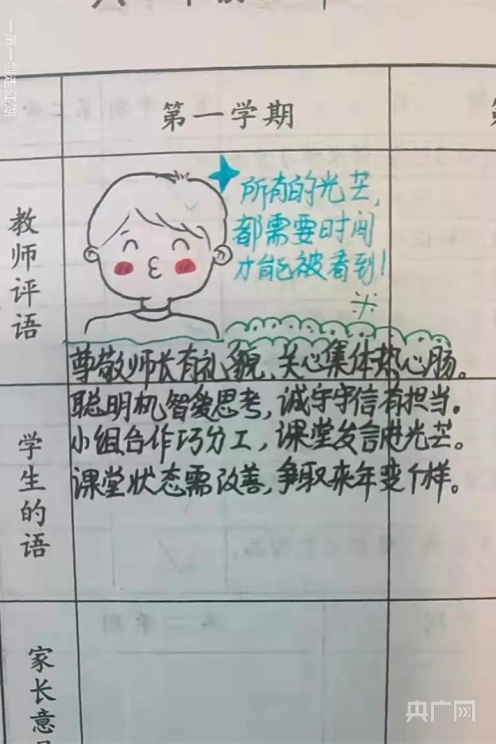 第一学期
教师评语
所有的光芒，
都需要时间
才能被看到！
尊敬师长有礼貌、关心集体热心肠。
聪明机智爱思考，诚守守信有担当。
小组合作巧分工，课堂发言迸光芒。
课堂状态需改善，争取来年变个样。
学生的话
家长意见
央广网